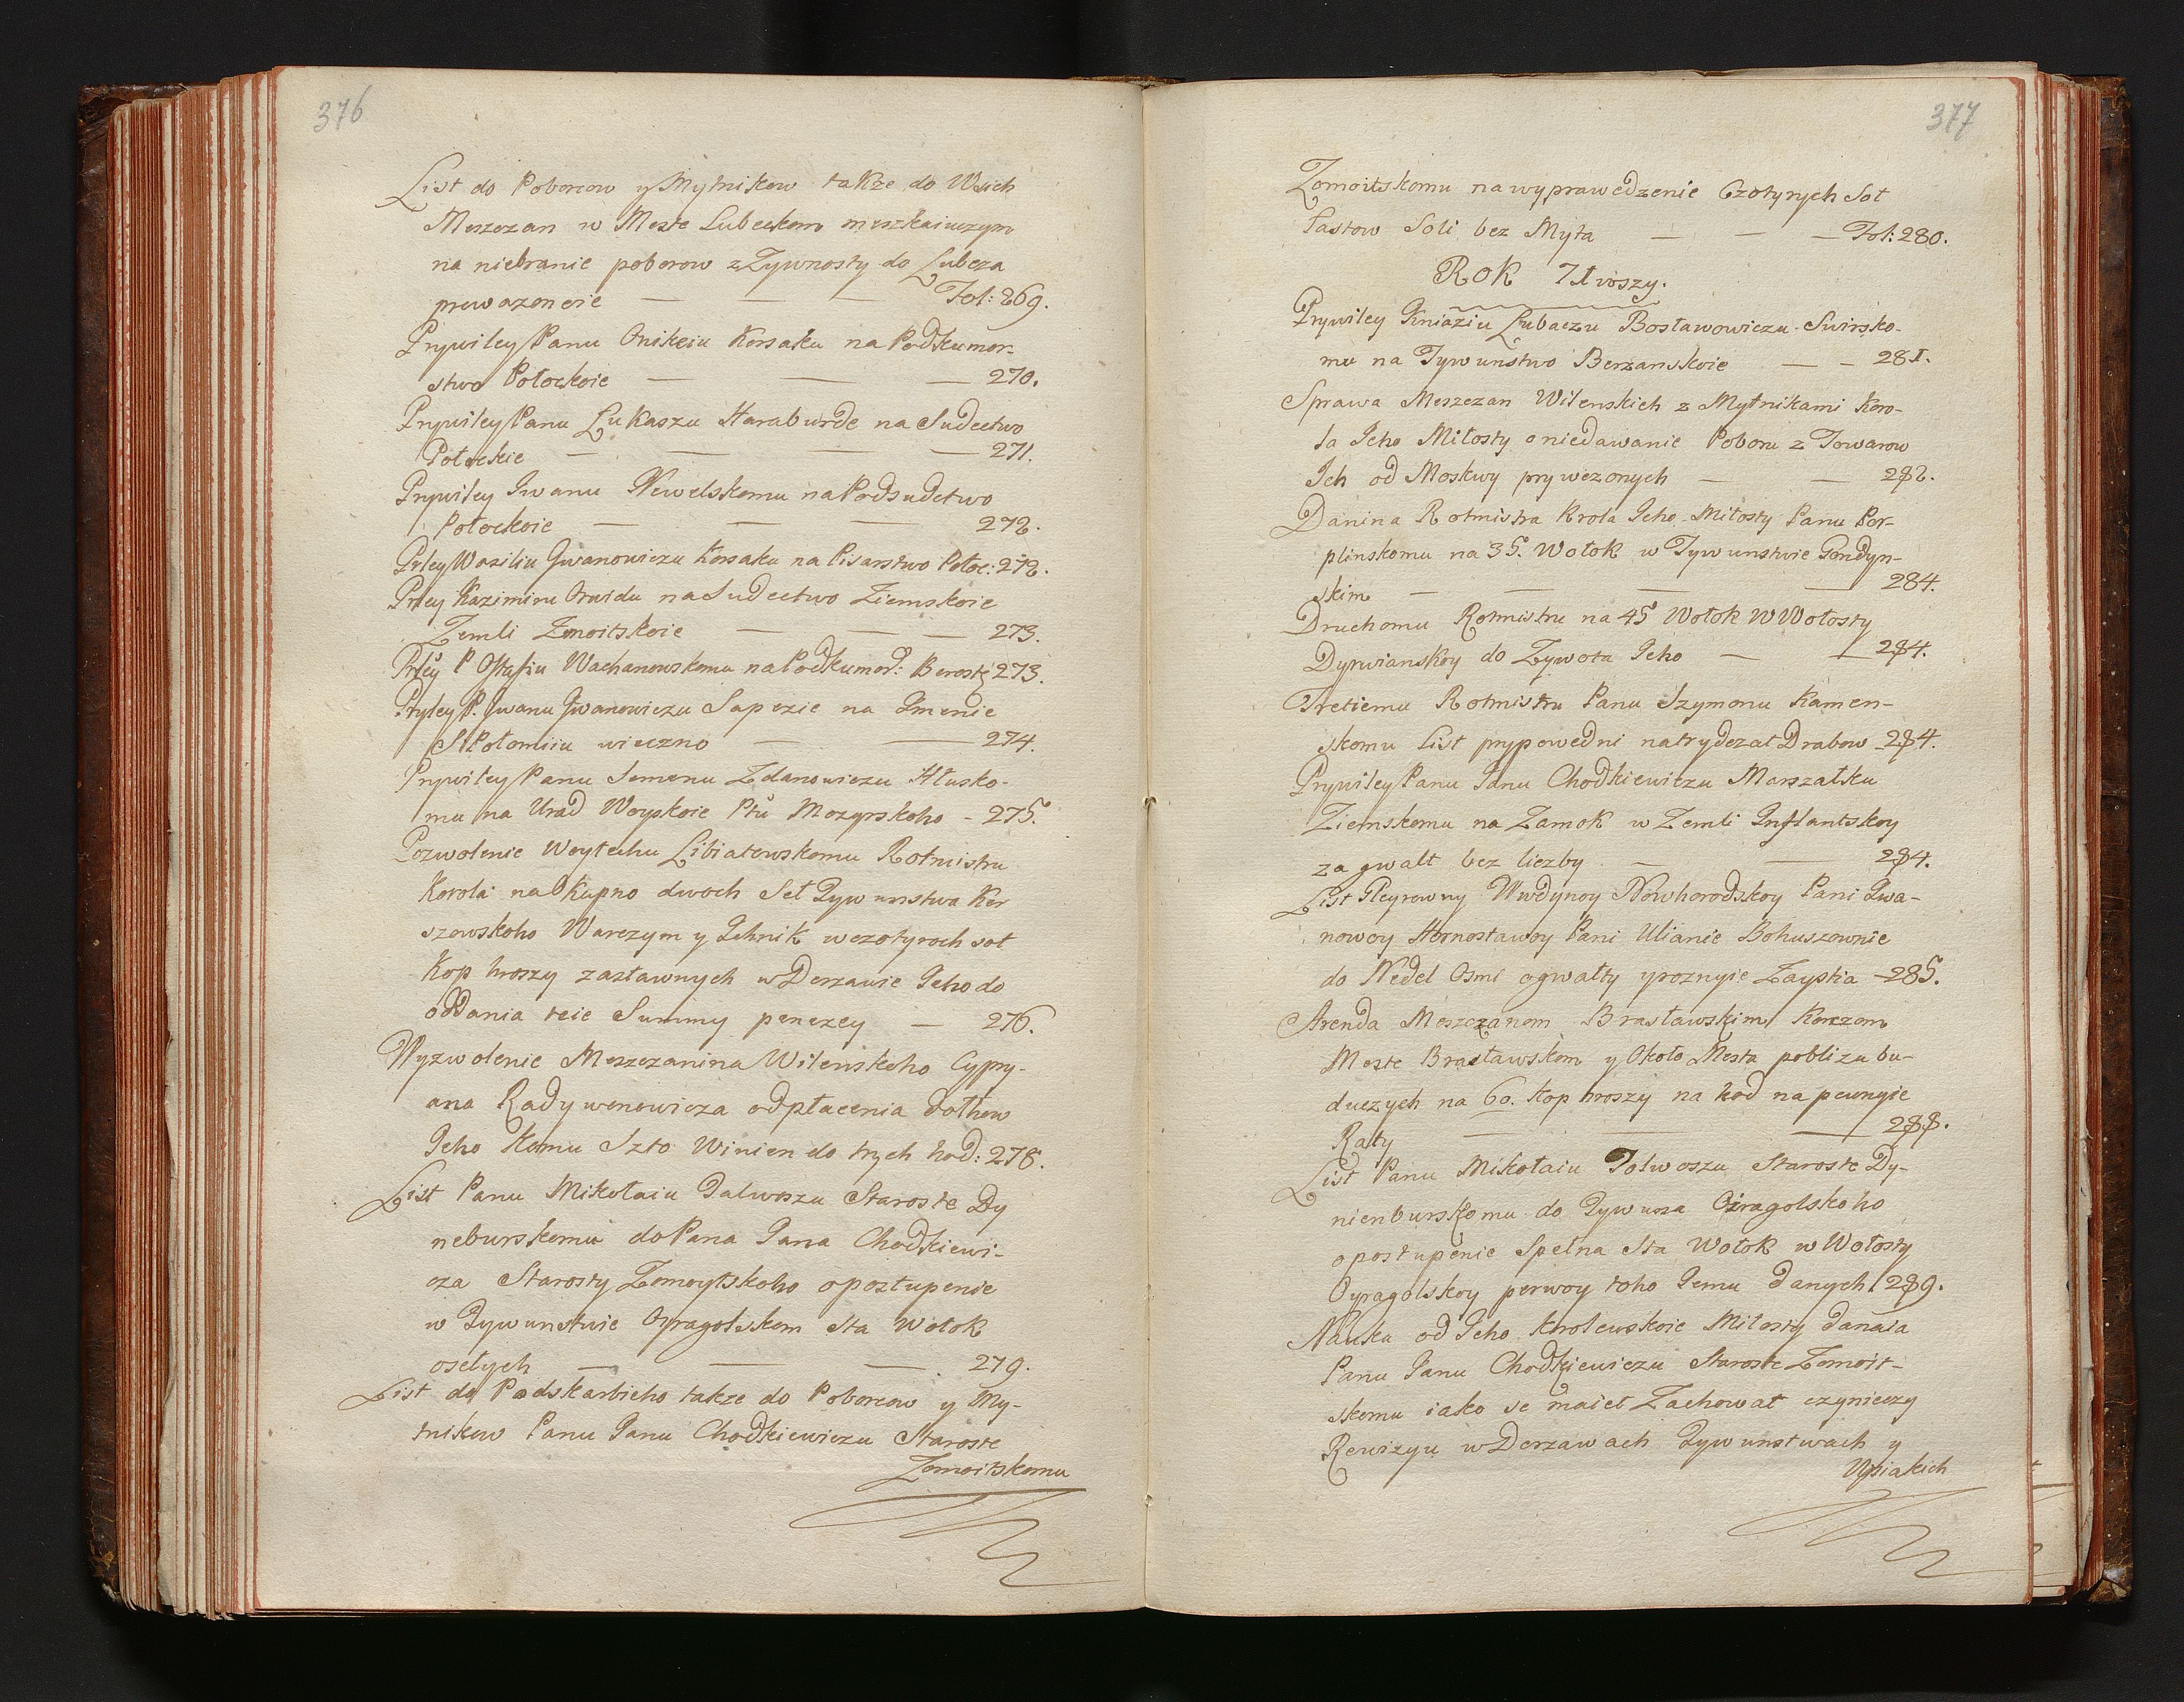 376
List do Poborcow y Mytnikow takze do Wsich
Meszczan w Meste Lubeckom meszkaiuczym
na niebranie poborow z Zywnosty do Lubcza
prewazonoie — — — Fol: 269.
Prywiley Panu Onikeiu Korsaku na Podkumor-
stwo Połockoie — — — 270.
Prywiley Panu Lukaszu Haraburde na Sudectwo
Połockie — — — — 271.
Prywiley Iwanu Newelskomu na Podsudctwo
Połockoie — — — 272.
Prłey Wasiliu Iwanowiczu Korsaku na Pisarstwo Połoc: 272.
Prłey Kazimiru Orwidu na Sudectwo Ziemskoie
Zemli Zmoitskoie — — — 273.
Prłey P Ostafiu Wachanowskomu na Podkumor: Berestz 273.
Pryłey P. Iwanu Iwanowiczu Sapezie na Imenie
S Połomiiu wieczno — — 274.
Prywiley Panu Semenu Zdanowiczu Hłusko-
mu na Urad Woyskoie Ptu Mozyrskoho - 275.
Pozwolenie Woytechu Libiatowskomu Rotmistru
Korola na Okupno dwoch Seł Tywunstwa Kor
szowskoho Warczym y Ihnik w czotyroch sot
Kop hroszy zastawnych w Derzawie Ieho do
oddania teie Summy penezey — 276.
Wyzwolenie Meszczanina Wilenskoho Cypry-
ana Radywonowicza od płacenia dołhow
Ieho Komu Szto Winien do trych hod: 278.
List Panu Mikołaiu Talwoszu Staroste Dy
neburskomu do Pana Iana Chodkiewi-
cza Starosty Zomoytskoho o postupenie
w Tywunstwie Oyragolskom sta Wołok
osełych — — — 279.
List do Podskarbieho takze do Poborcow y My-
tnikow Panu Ianu Chodkiewiczu Staroste
Zomoitskomu
377
Zomoitskomu na wyprawedzenie Czotyrych Sot
Łastow Soli bez Myta — — — Fol: 280.
Rok 71wszy.
Prywiley Kniaziu Łubaczu Bosławowiczu Swirsko-
mu na Tywunstwo Berzanskoie — - 281.
Sprawa Meszczan Wilenskich z Mytnikami Koro-
la Ieho Miłosty o niedawanie Poboru z Towarow
Ich od Moskwy prywezonych — — 282.
Danina Rotmistra Krola Ieho Miłosty Panu Por-
plinskomu na 35. Wołok w Tywunstwie Gondyn-
skim — — — — 284.
Druhomu Rotmistru na 45 Wołok w Wołosty
Dyrwianskoy do Zywota Ieho — — 284.
Tretiemu Rotmistru Panu Szymonu Kamen-
skomu List prypowedni na trydczat Drabow - 284.
Prywiley Panu Ianu Chodkiewiczu Marszałku
Ziemskomu na Zamok w Zemli Inflantskoy
za gwałt bez liczby — — 284.
List Wwdynoy Nowhorodskoy Pani Iwa-
nowoy Hornostawoy Pani Ulianie Bohuszownie
do Nedel Osmi o gwałty y roznyie Zayscia - 285.
Arenda Meszczanom Brasławskim Korczom
Meste Brasławskom y Około Mesta poblizu bu-
duczych na 60. Kop hroszy na hod na pewnyie
Raty — — — 288.
List Panu Mikołaiu Tolwoszu Staroste Dy-
nienburskomu do Tywuna Oiragolskoho
o postupenie Spełna Sta Wołok w Wołosty
Oyragolskoy perwoy toho Iemu danych 289.
Nauka od Ieho Krolewskoie Miłosty danaia
Panu Ianu Chodkiewiczu Staroste Zomoit-
skomu iako se maiet Zachowat czyniecy
Rewizyu w Derzawach Tywunstwach y
Wsiakich